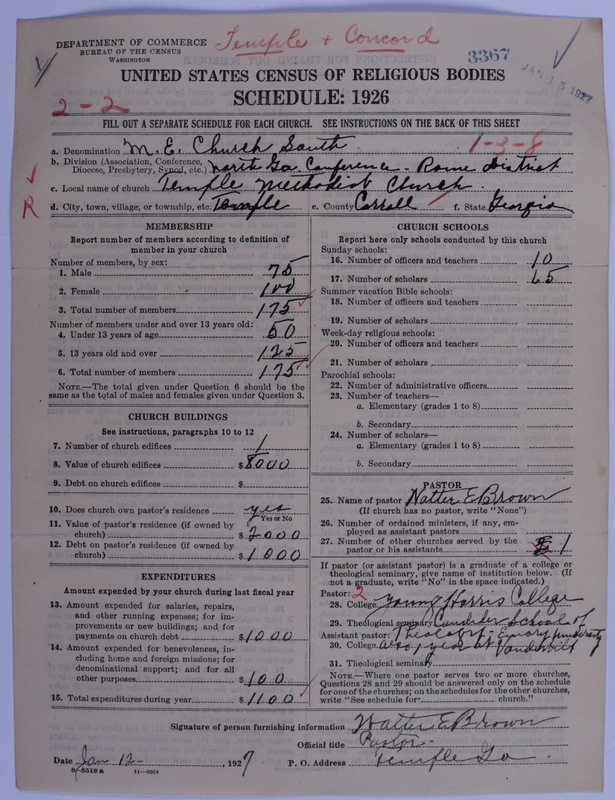 Temple + Concord
DEPARTMENT OF COMMERCE
BUREAU OF THE CENSUS
WASHINGTON
3367
JAN 25 1927
UNITED STATES CENSUS OF RELIGIOUS BODIES
SCHEDULE: 1926
2-2
FILL OUT A SEPARATE SCHEDULE FOR EACH CHURCH. SEE INSTRUCTIONS ON THE BACK OF THIS SHEET
a. Denomination M. E. Church South 1-3-8
b. Division (Association, Conference, Diocese, Presbytery, Synod, etc.) North Ga Conference - Rome District
c. Local name of church Temple Methodist Church
R
d. City, town, village, or township, etc. Temple e. County Carroll f. State Georgia
MEMBERSHIP
Report number of members according to definition of
member in your church
Number of members, by sex:
1. Male 75
2. Female 100
3. Total number of members 175
Number of members under and over 13 years old:
4. Under 13 years of age 50
5. 13 years old and over 125
6. Total number of members 175
NOTE.—The total given under Question 6 should be the
same as the total of males and females given under Question 3.
CHURCH BUILDINGS
See instructions, paragraphs 10 to 12
7. Number of church edifices 1
8. Value of church edifices $8000
9. Debt on church edifices $
10. Does church own pastor's residence yes
Yes or No
11. Value of pastor's residence (if owned by
church) $2000
12. Debt on pastor's residence (if owned by
church) $1000
EXPENDITURES
Amount expended by your church during last fiscal year
13. Amount expended for salaries, repairs,
and other running expenses; for im-
provements or new buildings; and for
payments on church debt $1000
14. Amount expended for benevolences, in-
cluding home and foreign missions; for
denominational support; and for all
other purposes $100
15. Total expenditures during year $1100
CHURCH SCHOOLS
Report here only schools conducted by this church
Sunday schools:
16. Number of officers and teachers 10
17. Number of scholars 65
Summer vacation Bible schools:
18. Number of officers and teachers
19. Number of scholars
Week-day religious schools:
20. Number of officers and teachers
21. Number of scholars
Parochial schools:
22. Number of administrative officers
23. Number of teachers—
a. Elementary (grades 1 to 8)
b. Secondary
24. Number of scholars—
a. Elementary (grades 1 to 8)
b. Secondary
PASTOR
25. Name of pastor Walter E Brown
(If church has no pastor, write "None")
26. Number of ordained ministers, if any, em-
ployed as assistant pastors
27. Number of other churches served by the
pastor or his assistants 1
If pastor (or assistant pastor) is a graduate of a college or
theological seminary, give name of institution below. (If
not a graduate, write "No" in the space indicated.)
Pastor: 2
28. College Young Harris College
29. Theological seminary Candler School of
Assistant pastor: Theology - Emory University
30. College also 1 year at Vanderbilt
31. Theological seminary
NOTE.—Where one pastor serves two or more churches,
Questions 28 and 29 should be answered only on the schedule
for one of the churches; on the schedules for the other churches,
write "See schedule for church."
Signature of person furnishing information Walter E Brown
Official title Pastor
Date Jan 12 - , 1927 P. O. Address Temple Ga.
8-5518 a 11—9054